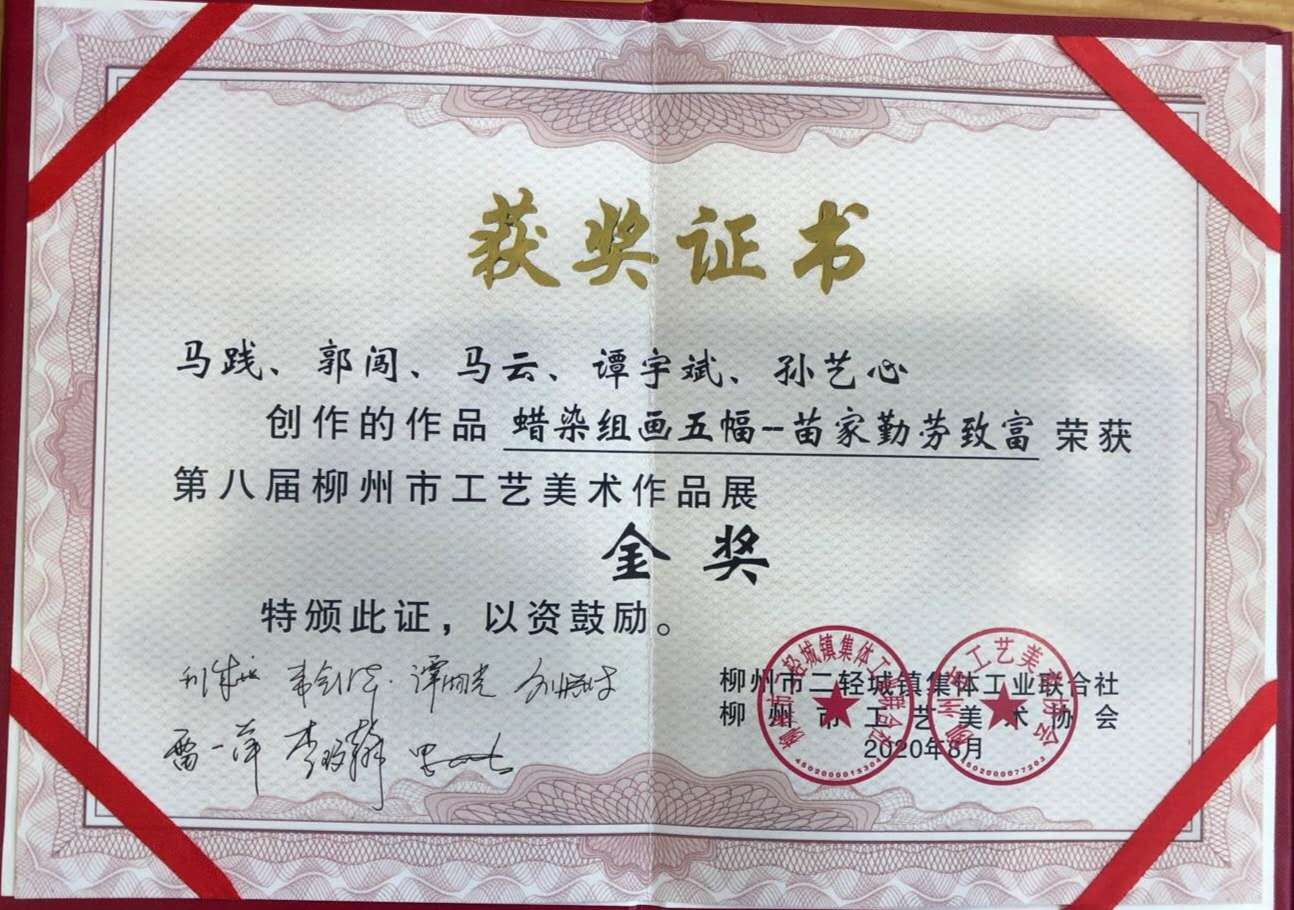 获奖证书
马践、郭闯、马云、谭宇斌、孙艺心
创作的作品 蜡染组画五幅--苗家勤劳致富 荣获
第八届柳州市工艺美术作品展
金奖
特颁此证，以资鼓励。
雷一萍
柳州市二轻城镇集体工业联合社
柳州市工艺美术协会
2020年8月